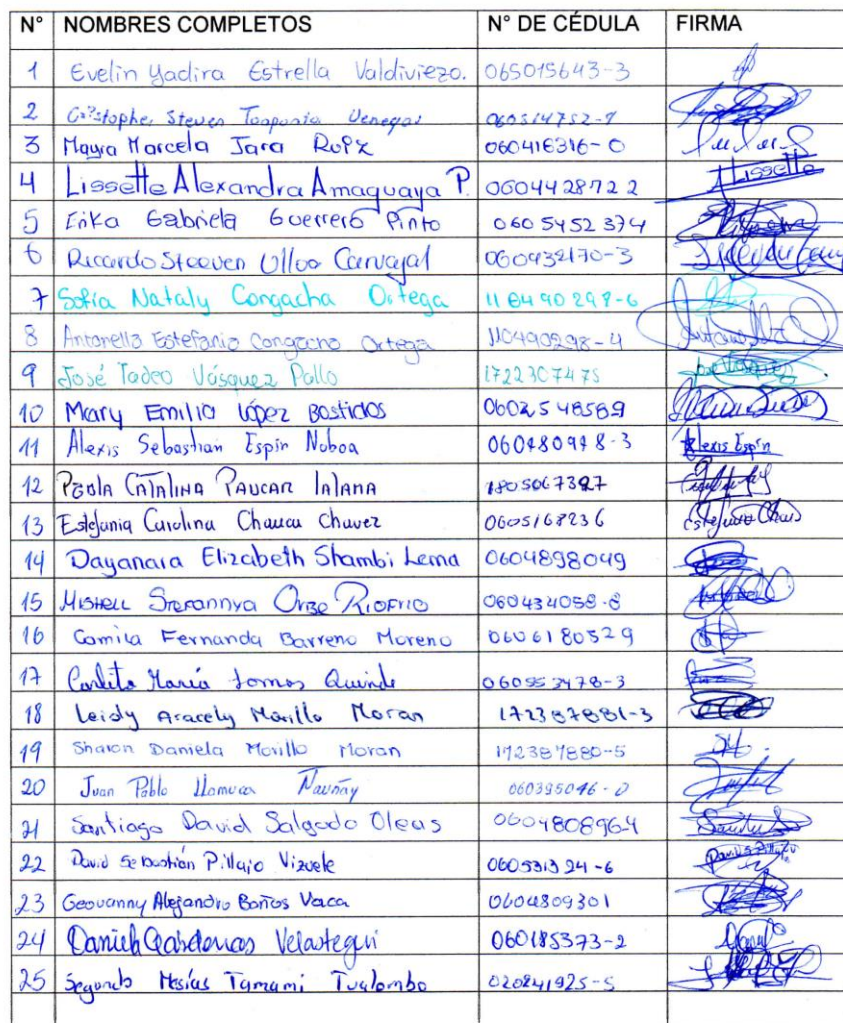 N° NOMBRES COMPLETOS N° DE CÉDULA FIRMA
1 Evelin Yadira Estrella Valdiviezo. 065015643-3
2 Steven Venegas
3 Mayra Marcela Jara Ruiz 060416316-0
4 Lissette Alexandra Amaguaya P. 0604428722 Lissette
5 Erika Gabriela Guerrero Pinto 0605452374
6 Ricardo Steeven Ulloa Carvajal 060932170-3
7 Sofia Nataly Congacha Ortega
8 Antonella Estefania Ortega 110490298-4
9 José Tadeo Vásquez Pallo 1722307475
10 Mary Emilia López Bastidas 0602548589
11 Alexis Sebastian Espin Noboa 060480948-3 Alexis Espin
12 PAOLA CATALINA PAUCAR
13 Estefania Carolina Chauca Chavez 0605167236
14 Dayanara Elizabeth Shambi Lema 0604898049
15 060434058-8
16 Camila Fernanda Barreno Moreno 0606180529
17 María Quinde 060553478-3
18 Leidy Aracely Morillo Moran 172387881-3
19 Sharon Daniela Morillo Moran 172387880-5
20 Juan Pablo Llamuca Naunay 060395046-0
21 Santiago David Salgado Oleas 0604808964
22 David Sebastián Pillajo Vizuete 060531324-6
23 Geovanny Alejandro Barros Vaca 0604809301
24 Daniela Cardenas Velastegui 060185373-2
25 Segundo Mesías Tamami Tualombo 020241925-5